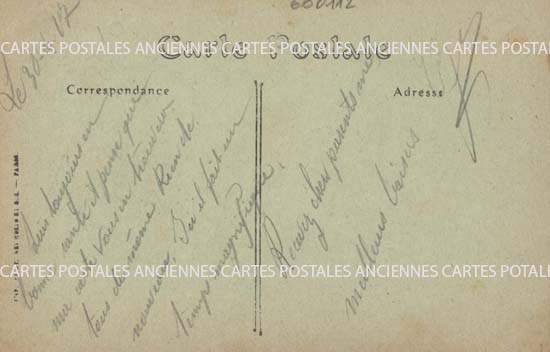 600112
Le 30 - 17
Carte Postale
CARTES POSTALES ANCIENNES CARTES POSTALES ANCIENNES CARTES POSTALES
Correspondance
Adresse
suis toujours en
bonne santé et pense que
ma carte vous en trouvera
tous de même. Rien de
nouveau. Ici il fait un
temps magnifique.
Recevez chers parents mes
meilleurs baisers
CARTES POSTALES ANCIENNES CARTES POSTALES ANCIENNES CARTES POSTALES